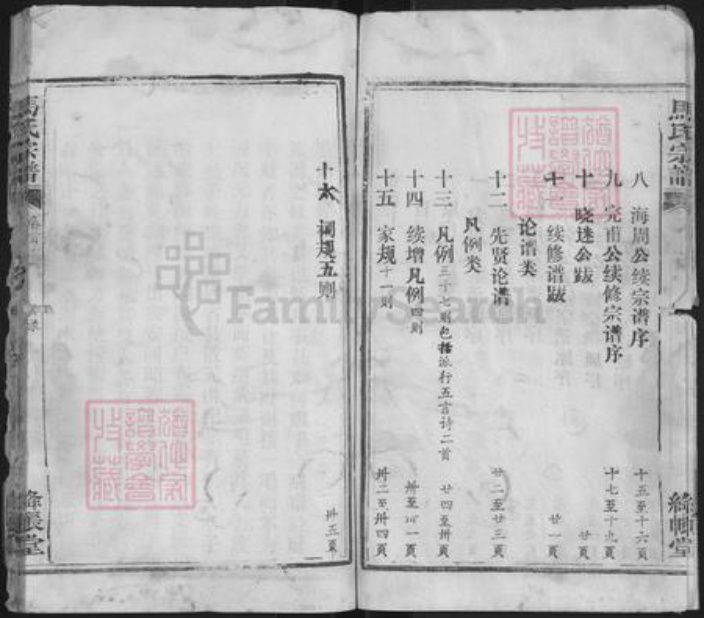 馬氏宗譜
八 海周公续宗谱序 十五至十六頁
九 完甫公续修宗谱序 十七至十九頁
十 晓迷公跋 廿頁
十 续修谱跋 廿一頁
论谱类
十二 先贤论谱 廿二至廿三頁
凡例类
十三 凡例 三十七则包括派行五言诗二首 廿四至卅頁
十四 续增凡例 四则 卅至卅一頁
十五 家规 十一则 卅二至卅四頁
絳帳堂
十六 祠规五则 卅五頁
馬氏宗譜
絳帳堂
FamilySearch